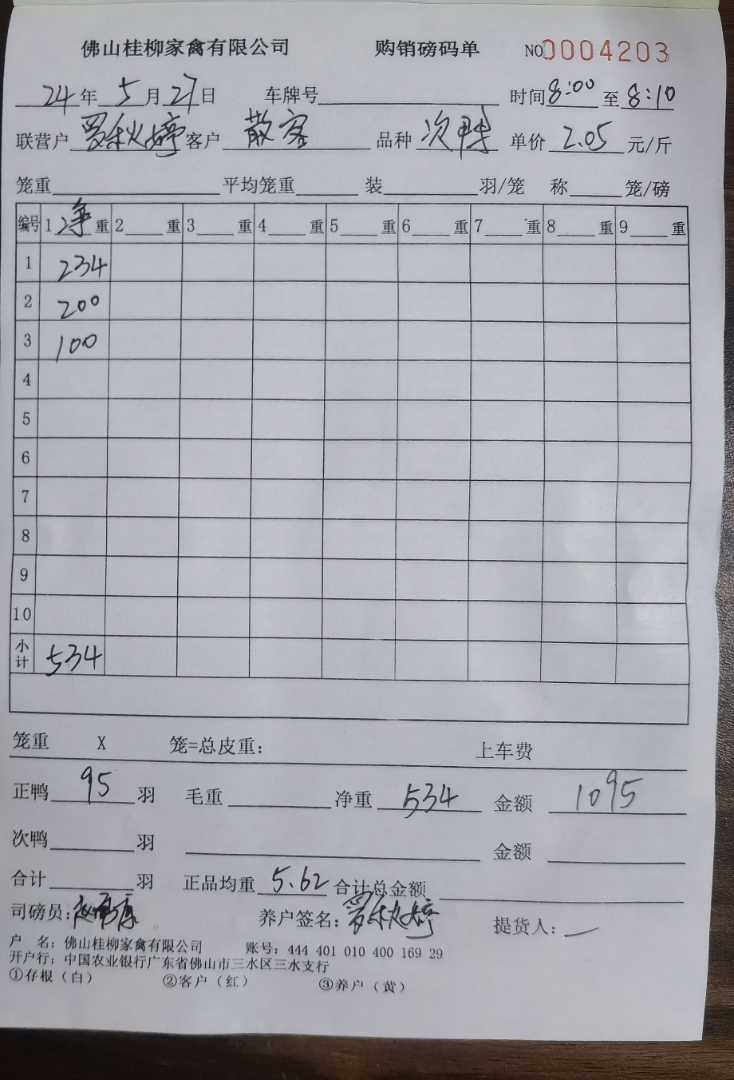 佛山桂柳家禽有限公司 购销磅码单 NO0004203
24年5月27日 车牌号 时间8:00至8:10
联营户罗秋婷客户 散客 品种 次鸭 单价 2.05 元/斤
笼重 平均笼重 装 羽/笼 称 笼/磅
编号 1净重 2 重 3 重 4 重 5 重 6 重 7 重 8 重 9 重
1 234
2 200
3 100
4
5
6
7
8
9
10
小计 534
笼重 X 笼=总皮重: 上车费
正鸭 95 羽 毛重 净重 534 金额 1095
次鸭 羽 金额
合计 羽 正品均重 5.62 合计总金额
司磅员: 养户签名:罗秋婷 提货人:
户 名: 佛山桂柳家禽有限公司 账号: 444 401 010 400 169 29
开户行: 中国农业银行广东省佛山市三水区三水支行
①存根(白) ②客户(红) ③养户(黄)